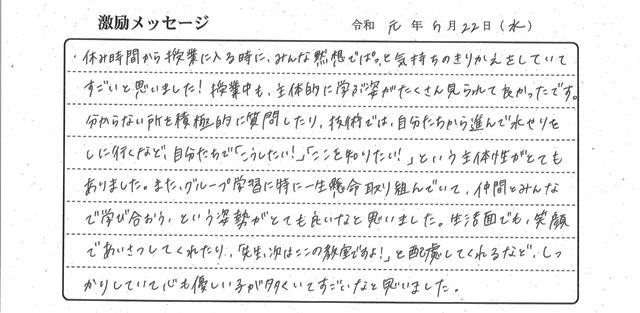 激励メッセージ 令和 元 年 5 月 22 日 (水)
・休み時間から授業に入る時に、みんな黙想でぱっと気持ちのきりかえをしていて
すごいと思いました！授業中も、主体的に学ぶ姿がたくさん見られて良かったです。
分からない所を積極的に質問したり、技術では、自分たちから進んで水やりを
しに行くなど、自分たちで「こうしたい！」「ここを知りたい！」という主体性がとても
ありました。また、グループ学習に特に一生懸命取り組んでいて、仲間とみんな
で学び合おう、という姿勢がとても良いなと思いました。生活面でも、笑顔
であいさつしてくれたり、「先生、次はここの教室ですよ！」と配慮してくれるなど、しっ
かりしていて心も優しい子が多くいてすごいなと思いました。